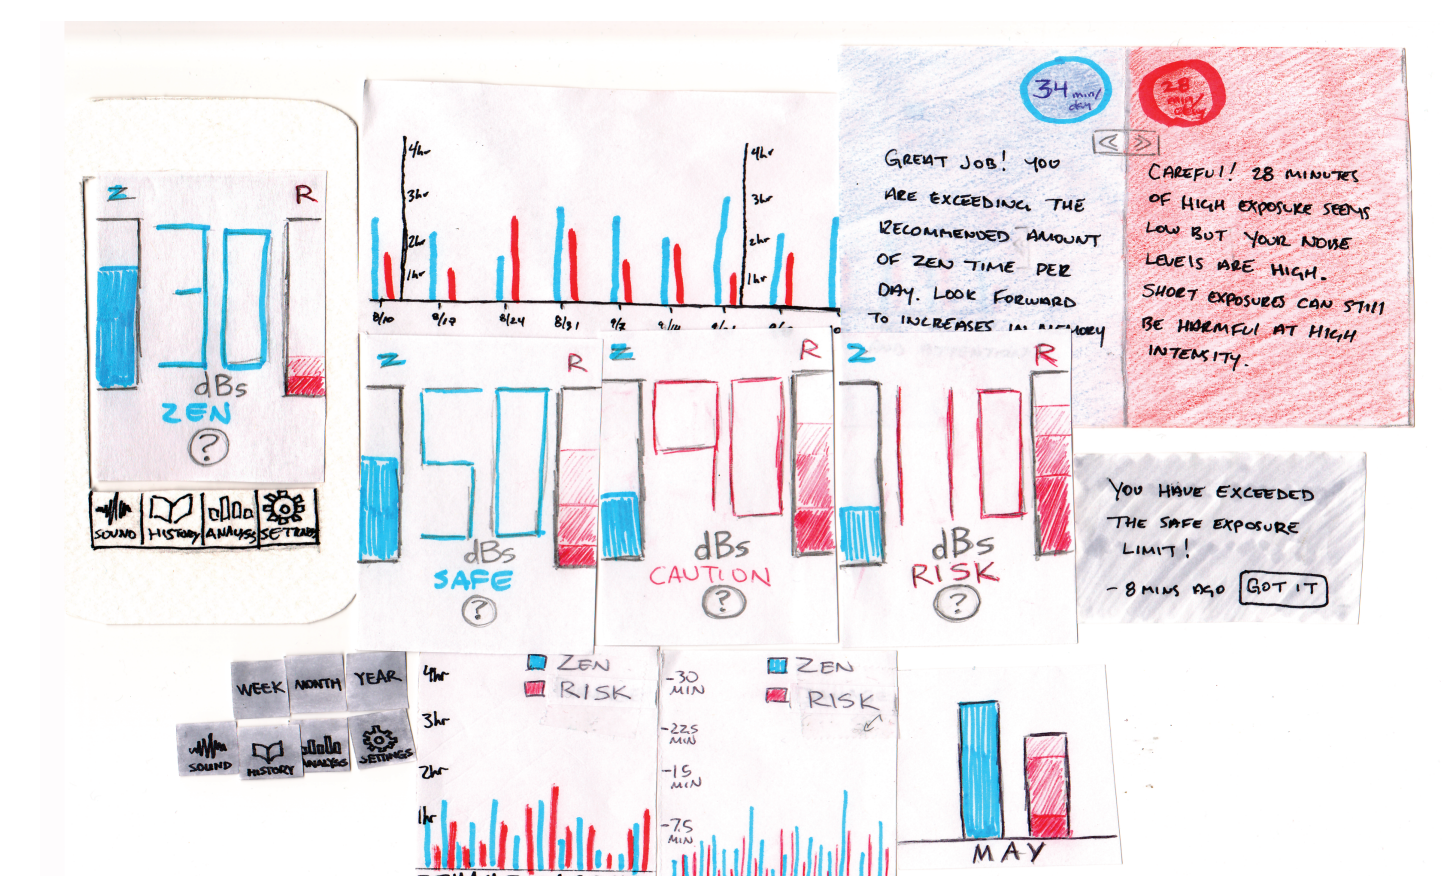 Z R
30
dBs
ZEN
?
SOUND HISTORY ANALYSIS SETTINGS
4hr
3hr
2hr
1hr
4hr
3hr
2hr
1hr
8/10 8/17 8/24 8/31 9/7 9/14
34 min/
day
GREAT JOB! YOU
ARE EXCEEDING THE
RECOMMENDED AMOUNT
OF ZEN TIME PER
DAY. LOOK FORWARD
TO INCREASES IN MEMORY
28
min/
day
<< >>
CAREFUL! 28 MINUTES
OF HIGH EXPOSURE SEEMS
LOW BUT YOUR NOISE
LEVELS ARE HIGH.
SHORT EXPOSURES CAN STILL
BE HARMFUL AT HIGH
INTENSITY.
Z R
50
dBs
SAFE
?
Z R
90
dBs
CAUTION
?
Z R
110
dBs
RISK
?
YOU HAVE EXCEEDED
THE SAFE EXPOSURE
LIMIT!
- 8 MINS AGO GOT IT
WEEK MONTH YEAR
SOUND HISTORY ANALYSIS SETTINGS
ZEN
RISK
4hr
3hr
2hr
1hr
ZEN
RISK
-30
MIN
-22.5
MIN
-15
MIN
-7.5
MIN
MAY